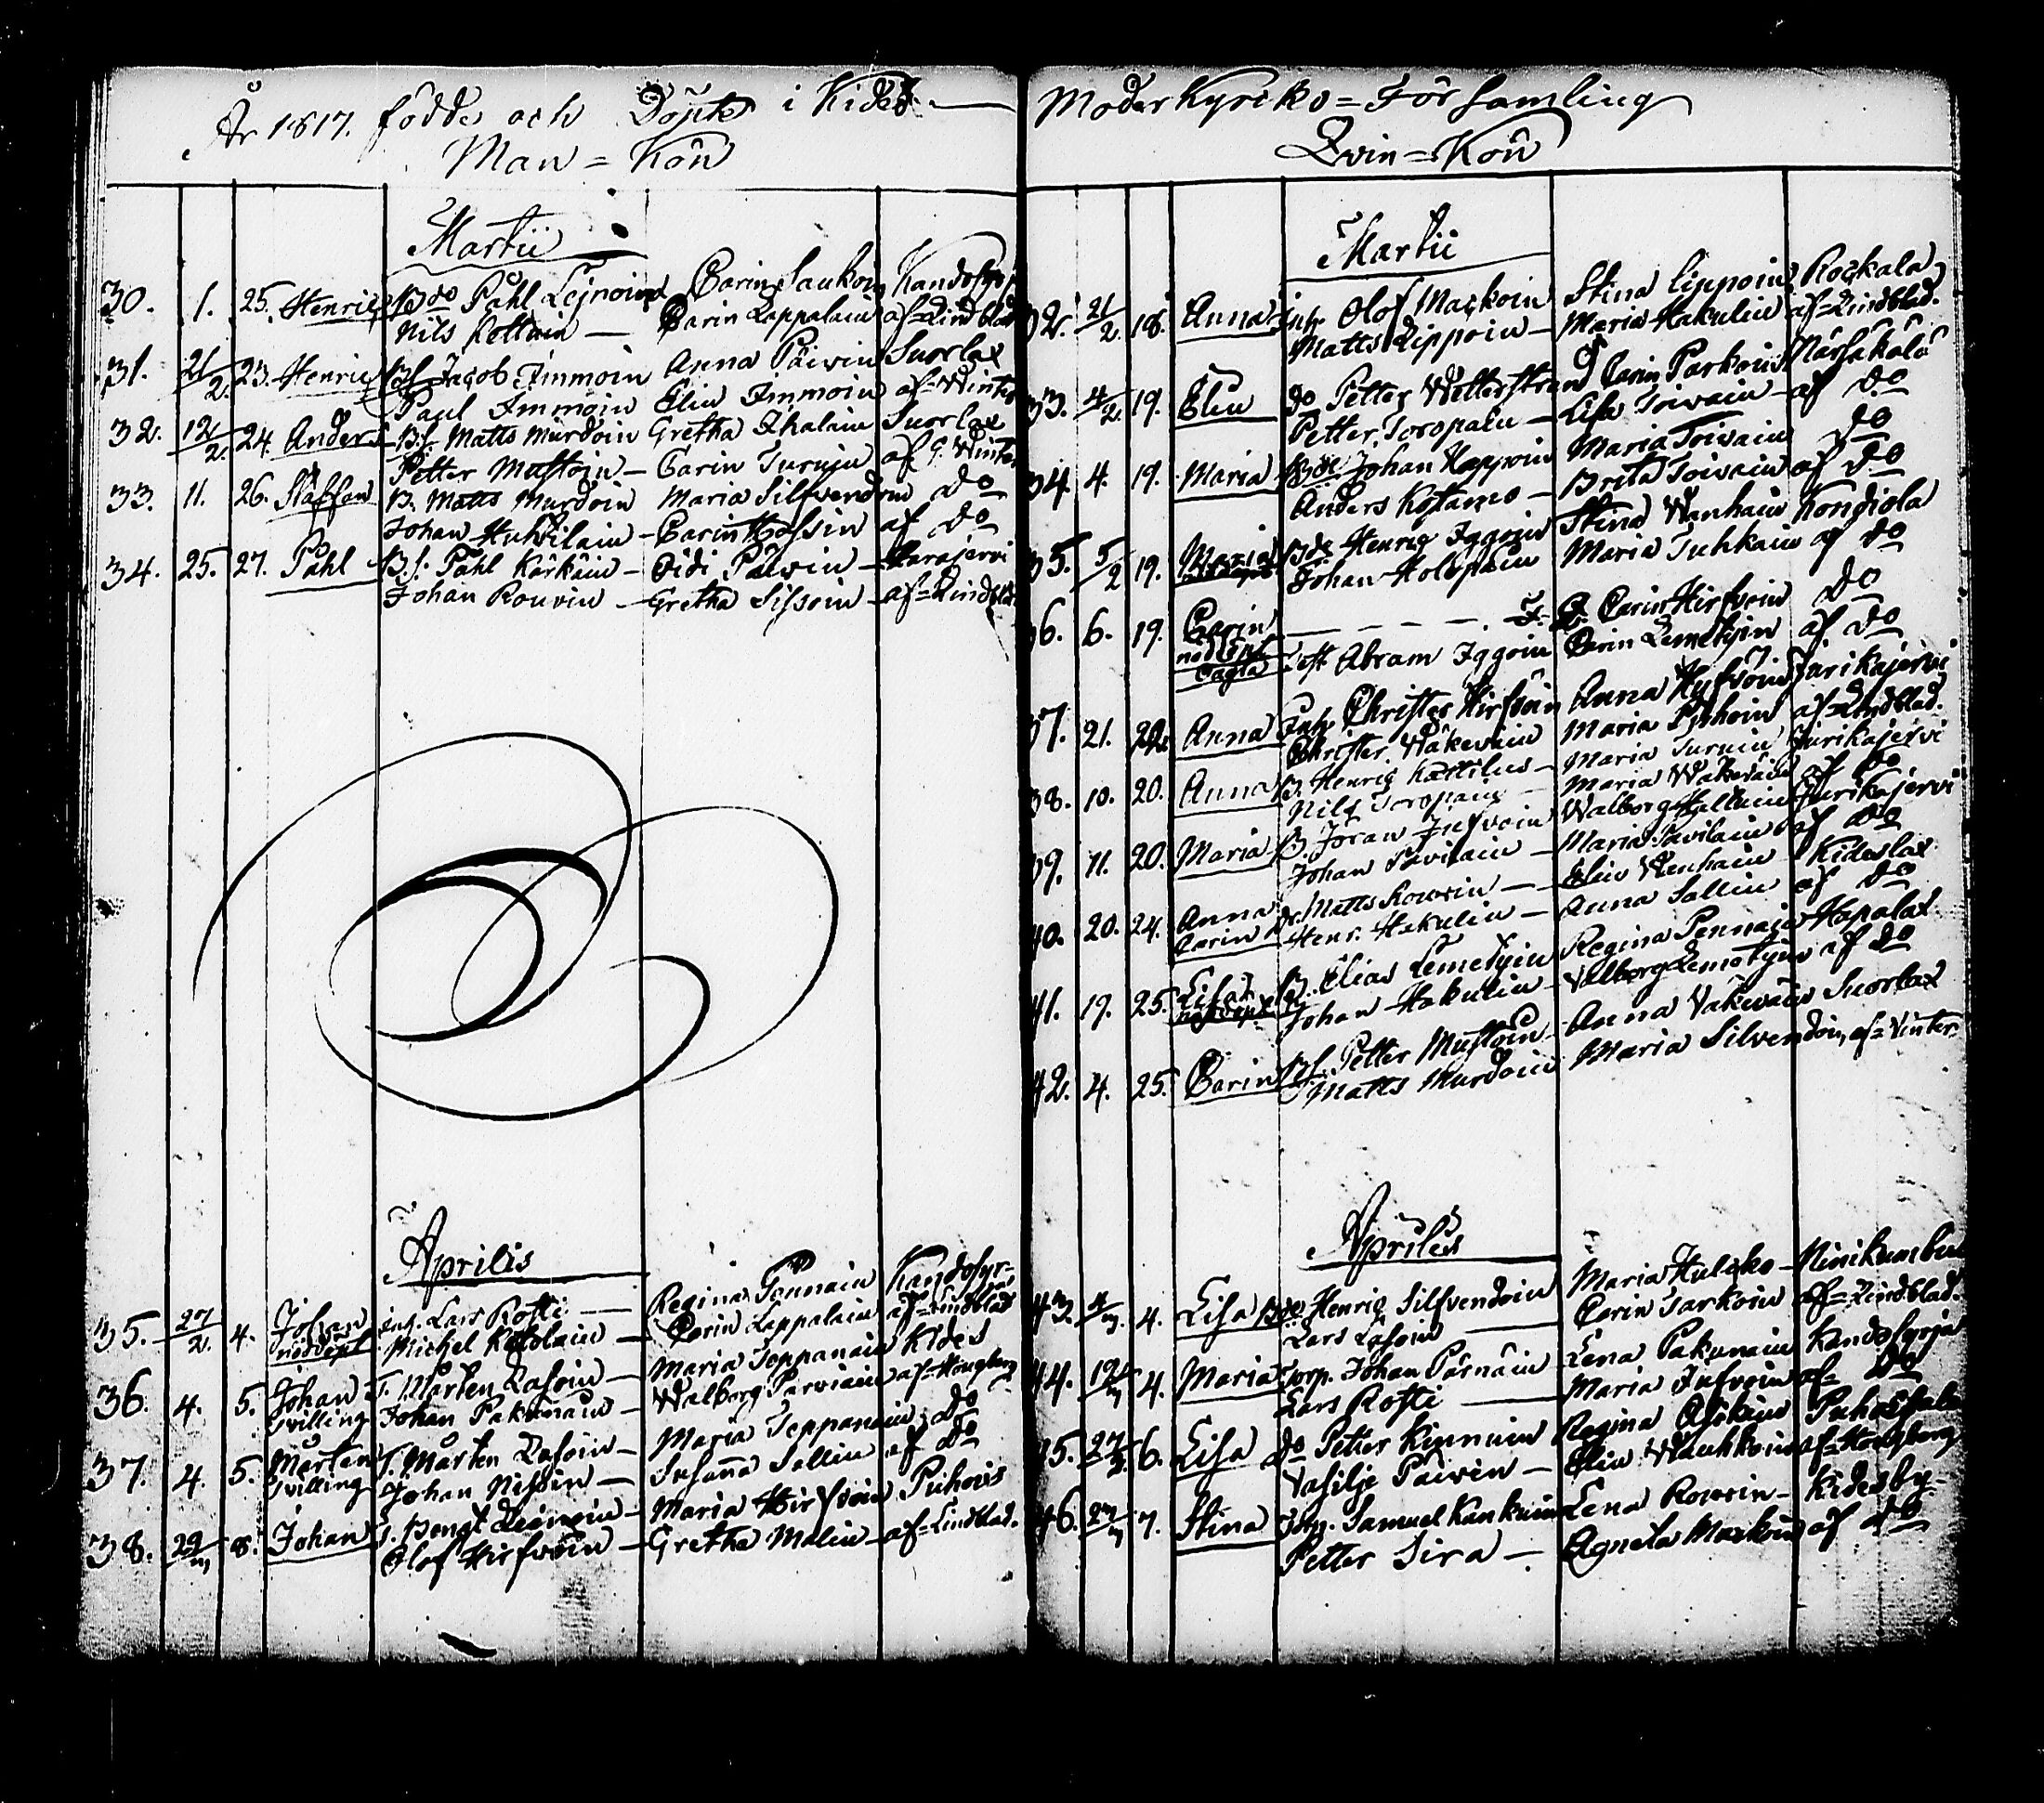 År 1817. födde och Döpte i Kides
Man = Kön
Martii
30. 1. 25. Henric Bde Påhl Lejnoin Carin Saukoin Kandosyrj
Nils Rottoin — Carin Lappalain af Lindblad
31. 21/2. 23. Henric Bf. Jacob Immoin Anna Päivin Suorlax
Paul Immoin Elin Immoin af Winter
32. 12/2. 24. Anders Bf. Matts Murdoin Gretha Ihalain Suorlax
Petter Mustoin — Carin Turujn af G. Winter
33. 11. 26. Staffan B. Matts Murdoin Maria Silfvendoin Do
Johan Huhtilain — Carin Hossin af Do
34. 25. 27. Påhl Bf. Påhl Kärkäin — Bidi Päivin — Varajervi
Johan Rouvin — Gretha Sissoin — af Lindblad
Aprilis
35. 27/2. 4. Johan inh. Lars Rosti — Regina Tennain Kandosyr-
nöddöpt Michel Ketolain — Carin Lappalain af Lindblad
36. 4. 5. Johan T. Mårten Lasoin — Maria Teppanain Kides
Tvilling Johan Pakunain — Walborg Parviain af Hougberg
37. 4. 5. Mårten T. Mårten Lasoin — Maria Teppanain Do
Tvilling Johan Nissin — Susanna Sallin af Do
38. 29/3 8. Johan T. Bengt Leinoin — Maria Hirfvoin Puhois
Olof Hirfvoin — Gretha Malin — af Lindblad.
Moder Kyrko = Församling
Qvin = Kön
Martii
32. 21/2. 18. Anna Inh. Olof Mackoin Stina Lippoin Rockala
Matts Lippoin — Maria Hakulin af Lindblad.
33. 4/2. 19. Elin Do Petter Wetterstrand Carin Parkoin Närsäkälä
Petter Toropain — Lisa Toivain af Do
34. 4. 19. Maria Bde Johan Happoin Maria Toivain Do
Anders Kotamo — Brita Toivain af Do
35. 5/2 19. Maria Bde Henric Iggoin Stina Wanhain Kondiola
Johan Holopain Maria Tuhkain af Do
36. 6. 19. Carin — — — — . Carin Hirfvoin Do
nöddöpt test Abram Iggoin Carin Lemetyin af Do
37. 21. 22. Anna Inh. Christer Hirfvoin Anna Hyfvöin Jurikajervi
Christer Wäkeväin Maria Pyhöin af Lindblad.
38. 10. 20. Anna B. Henric Kattilus — Maria Turuin Jurikajervi
Nils Toropain — Maria Wäkeväin af Do
39. 11. 20. Maria B. Jöran Jufvoin Walborg Halluin Jurikajervi
Johan Pavilain — Maria Pavilain af Do
40. 20. 24. Anna Do Matts Rouvin — Elin Wanhain Kideslax
Carin Henr. Hakulin — Anna Sallin af Do
41. 19. 25. Lisa B. Elias Lemetyin Regina Pennaja Hapalax
nöddöpt Johan Hakulin — Walborg Lemetyin af Do
42. 4. 25. Carin Bf. Petter Mustoin — Anna Väkeväin Suorlax
Matts Murdoin Maria Silvendoin, af Vinter.
Aprilis
43. 4/3. 4. Lisa Bde Henric Silfvendoin Maria Hulcko — Ninikumbu
Lars Lasoin — Carin Tarkoin af Lindblad.
44. 12/3 4. Maria Torp. Johan Pärnäin Lena Pakunain Kandosyrja
Lars Rosti — Maria Jufvoin af Do
45. 27/2. 6. Lisa Do Petter Kinnuin Regina Asikain Puhos
Vasilje Päivin — Elin Wauhkoin af Hougberg
46. 27/3 7. Stina Torp. Samuel Kankuin Lena Rouvin — Kidesby-
Petter Sira — Agneta Markoin af Do